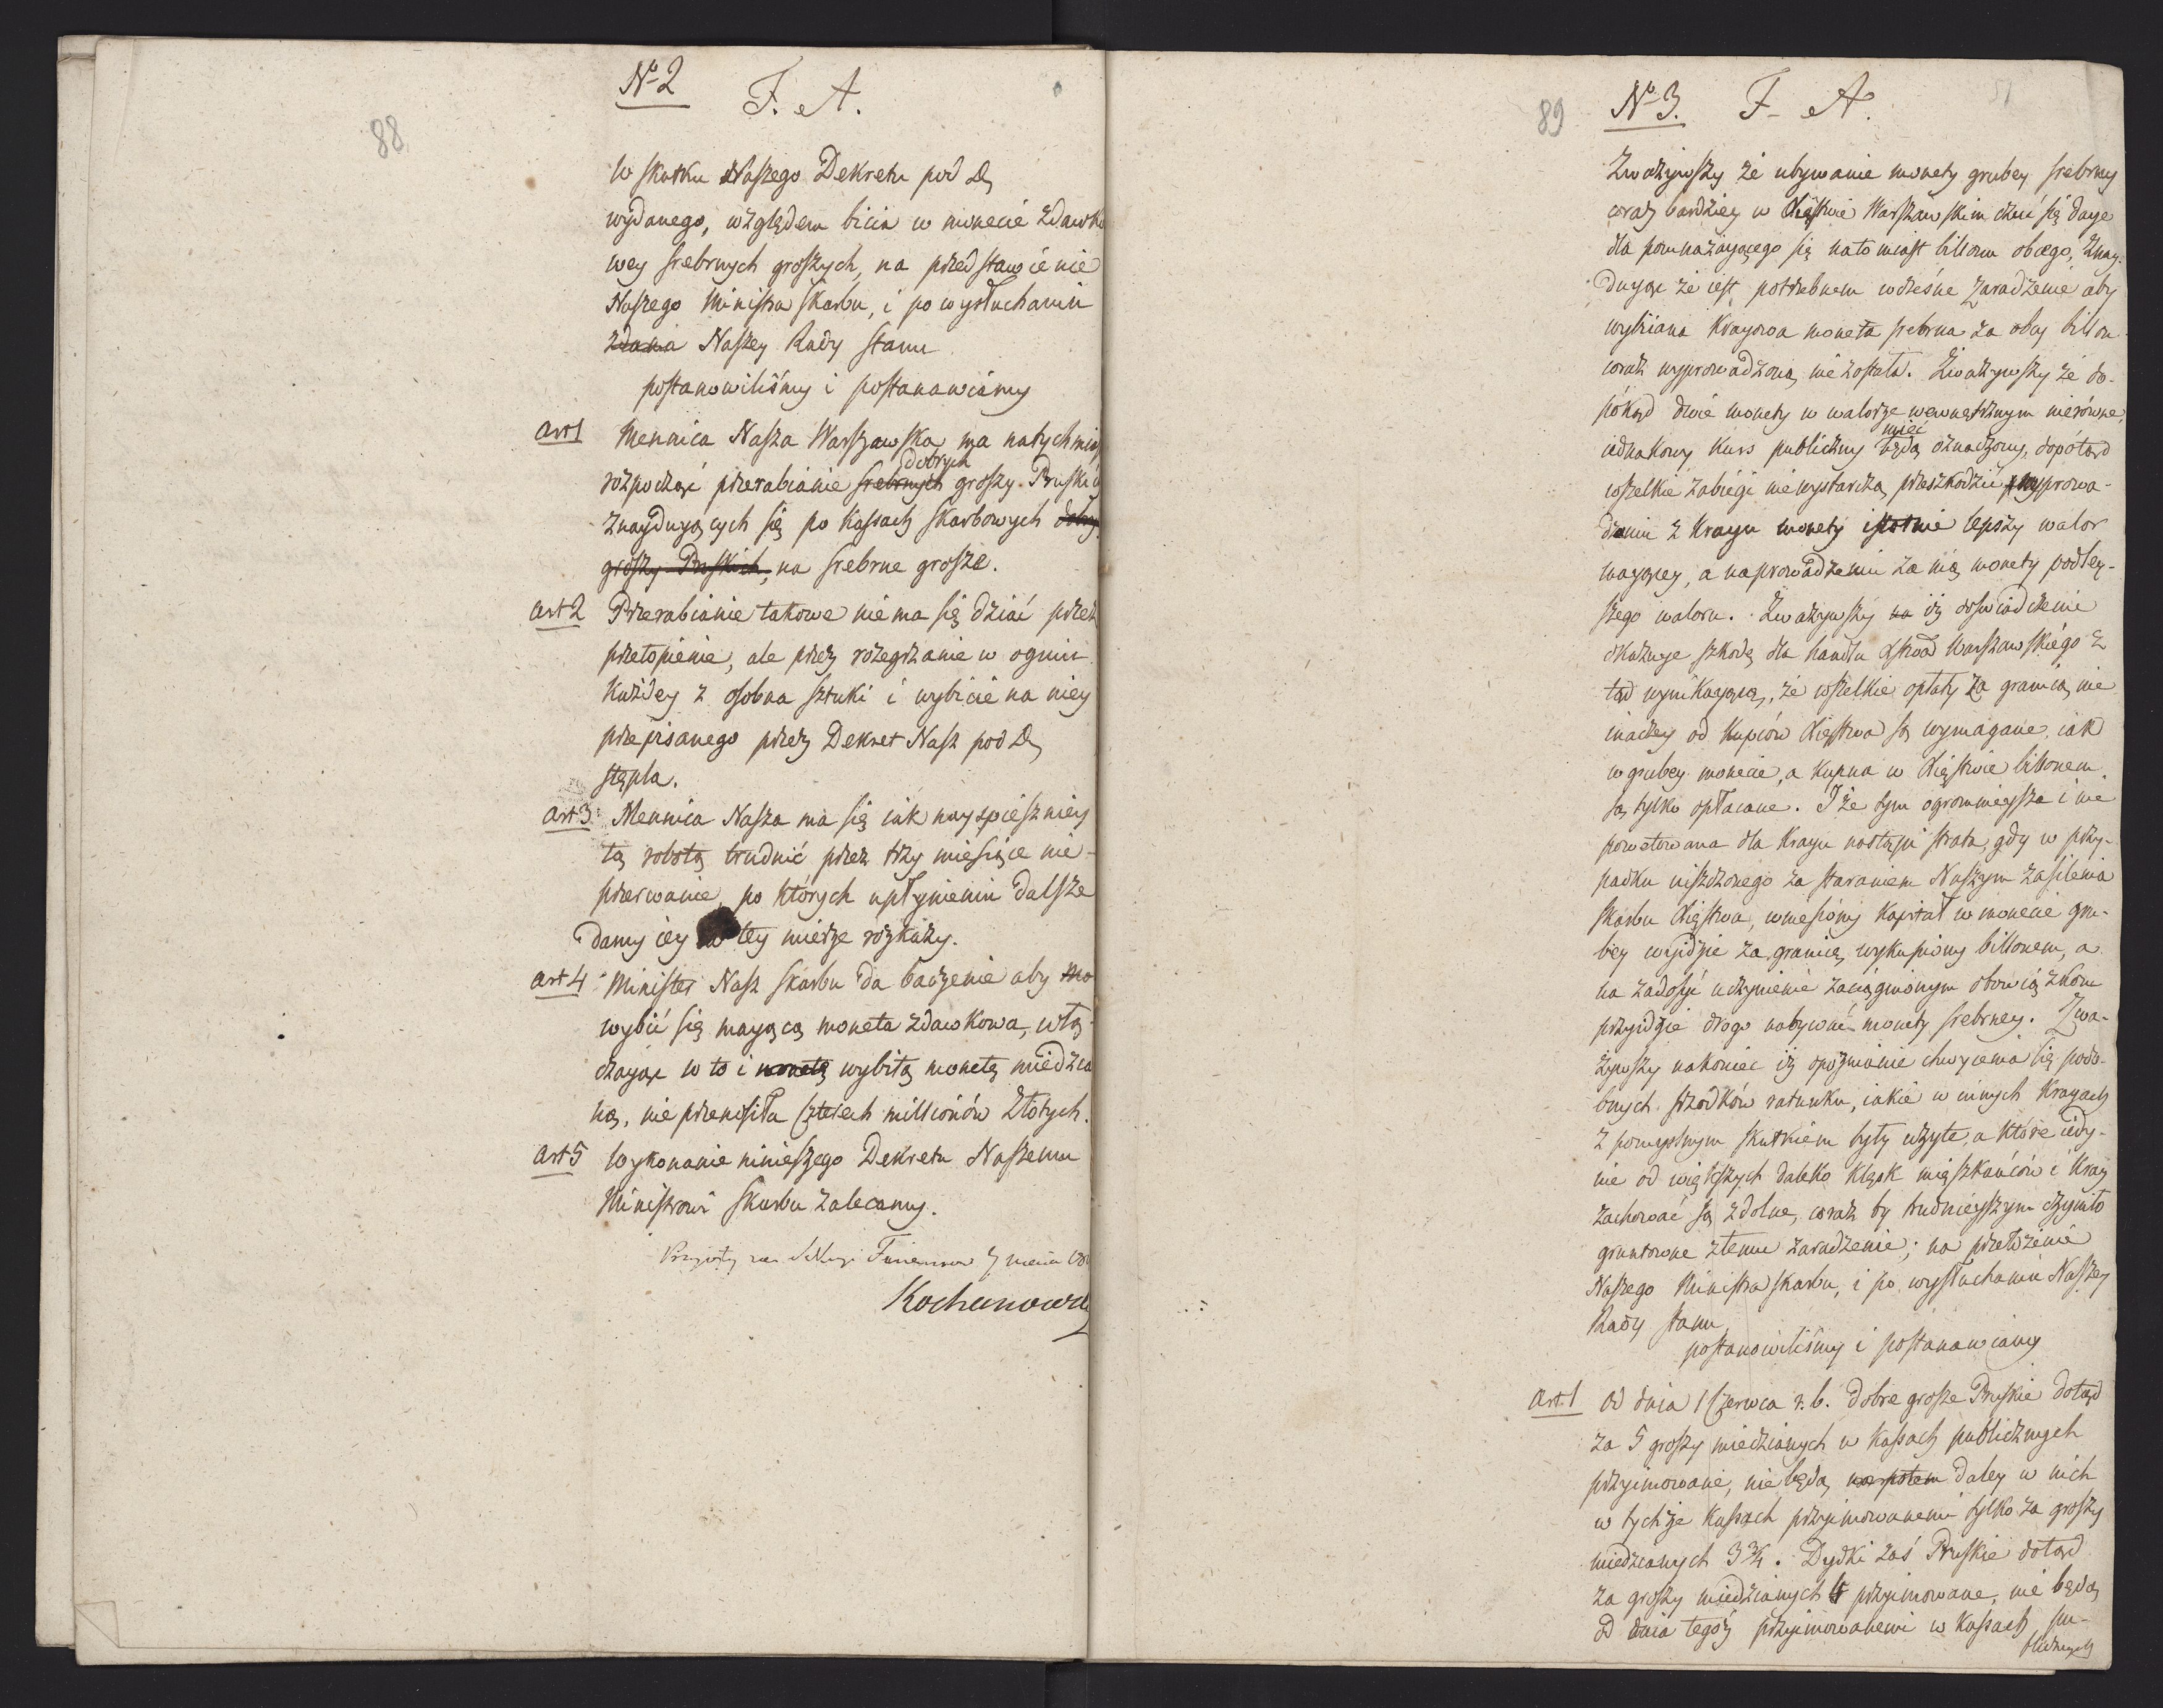 88
No 2
F. A.
W skutku Naszego Dekretu pod D.
wydanego, względem bicia w monecie zdawko
wey srebrnych groszych, na przedstawienie
Naszego Ministra Skarbu, i po wysłuchaniu
zdania Naszey Rady Stanu
postanowiliśmy i postanawiamy
Art 1 Mennica Nasza Warszawska ma natychmias
dobrych
rozpocząć przerabianie srebrnych groszy Pruskic
znayduyących się po Kassach Skarbowych dobry
groszy Pruskich, na srebrne grosze.
Art 2 Przerabianie takowe nie ma się dziać przez
przetopienie, ale przez rozegrzanie w ogniu
każdey z osobna sztuki i wybicie na niey
przepisanego przez Dekret Nasz pod D.
stępla.
Art 3 Mennica Nasza ma się iak nayspieszniey
tą robotą trudnić przez trzy miesiące nie-
przerwanie, po których upłynieniu dalsze
damy iey w tey mierze rozkazy.
Art 4 Minister Nasz Skarbu da baczenie aby mo
wybić się maiąca moneta zdawkowa, włą-
czaiąc w to i monetę wybitą monetę miedzia
ną, nie przenosiła czterech millionów Złotych.
Art 5 Wykonanie ninieyszego Dekretu Naszemu
Ministrowi Skarbu zalecamy.
Kochanows
89
No 3. F. A.
51
Zważywszy że ubywanie monety grubey srebrney
coraz bardziey w Xięstwie Warszawskim czuć się daye
dla pomnażaiącego się natomiast billonu obcego, Znay-
duyąc że iest potrzebnem wcześne zaradzenie aby
wybiiana Krayowa moneta srebrna za obcy billon
coraz wyprowadzoną nie została. Zważywszy że do-
pókąd dwie monety w walorze wewnętrznym nierówne,
mieć
iednakowy kurs publiczny będą oznaczony, dopótąd
wszelkie zabiegi nie wystarczą przeszkodzić wyprowa-
dzeniu z Krayu monety istotnie lepszy walor
maiącey, a naprowadzeniu za nią monety podley-
szego waloru. Zważywszy na iż doświadczenie
okazuye szkodę dla handlu Xięstwa Warszawskiego z
tąd wynikaiącą, że wszelkie opłaty za granicą nie
inaczey od Kupców Xięstwa są wymagane, iak
w grubey monecie, a kupna w Xięstwie billonem
są tylko opłacane. I że tym ogromnieysza i nie
powetowana dla Krayu nastąpi strata, gdy w przy-
padku uiszczonego za staraniem Naszym zasilenia
Skarbu Xięstwa, wniesiony kapitał w monecie gru-
bey wyidzie za granicę, wykupiony billonem, a
na zadosyć uczynienie zaciągnionym obowiązkom
przyidzie drogo nabywać monety srebrney. Zwa-
żywszy nakoniec iż opóźnianie chwycenia się podo-
bnych środków ratunku, iakie w innych Krayach
z pomyślnym skutkiem były użyte, a które iedy-
nie od większych daleko klęsk mieszkańców i Kray
zachować są zdolne, coraz by trudnieyszym czyniło
gruntowne złemu zaradzenie; na przełożenie
Naszego Ministra Skarbu, i po wysłuchaniu Naszey
Rady Stanu
postanowiliśmy i postanawiamy
Art. 1 Od dnia 1 Czerwca r. b. dobre grosze Pruskie dotąd
za 5 groszy miedzianych w Kassach publicznych
przyimowane, nie będą na potem daley w nich
w tychże Kassach przyimowanemi tylko za groszy
miedzianych 3 3/4. Dydki zaś Pruskie dotąd
za groszy miedzianych przyimowane, nie będą
od dnia tegoż przyimowanemi w Kassach pu-
blicznych